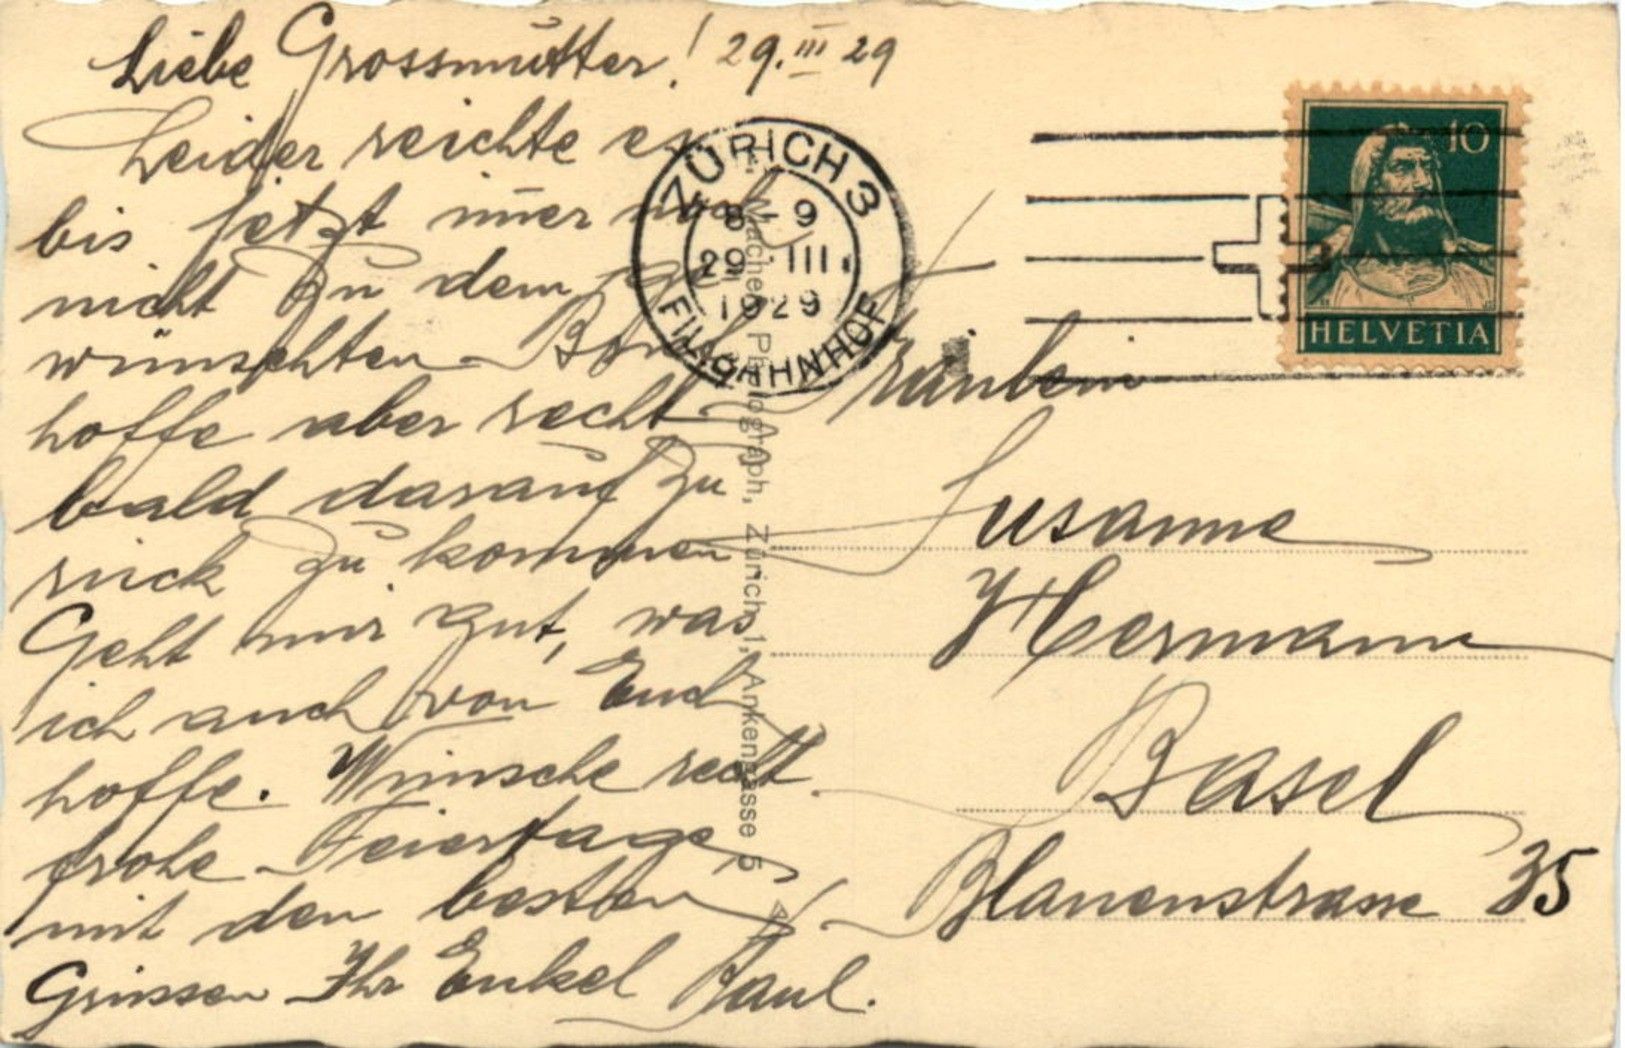 Liebe Grossmutter! 29.III 29
Leider reichte es
bis jetzt imer noch
nicht zu dem ge
wünschten
hoffe aber recht
bald darauf zu
rück zu kommen
Geht mir gut, was
ich auch von Euch
hoffe. Wünsche recht
frohe Feiertage
mit den besten
Grüssen Ihr Enkel Paul.
ZÜRICH 3
8-9
29.III.
1929
FIL.BAHNHOF
10
HELVETIA
Fräulein
Susanne
Hermann
Basel
Blauenstrasse 35
Photograph, Zürich 1, Ankengasse 5